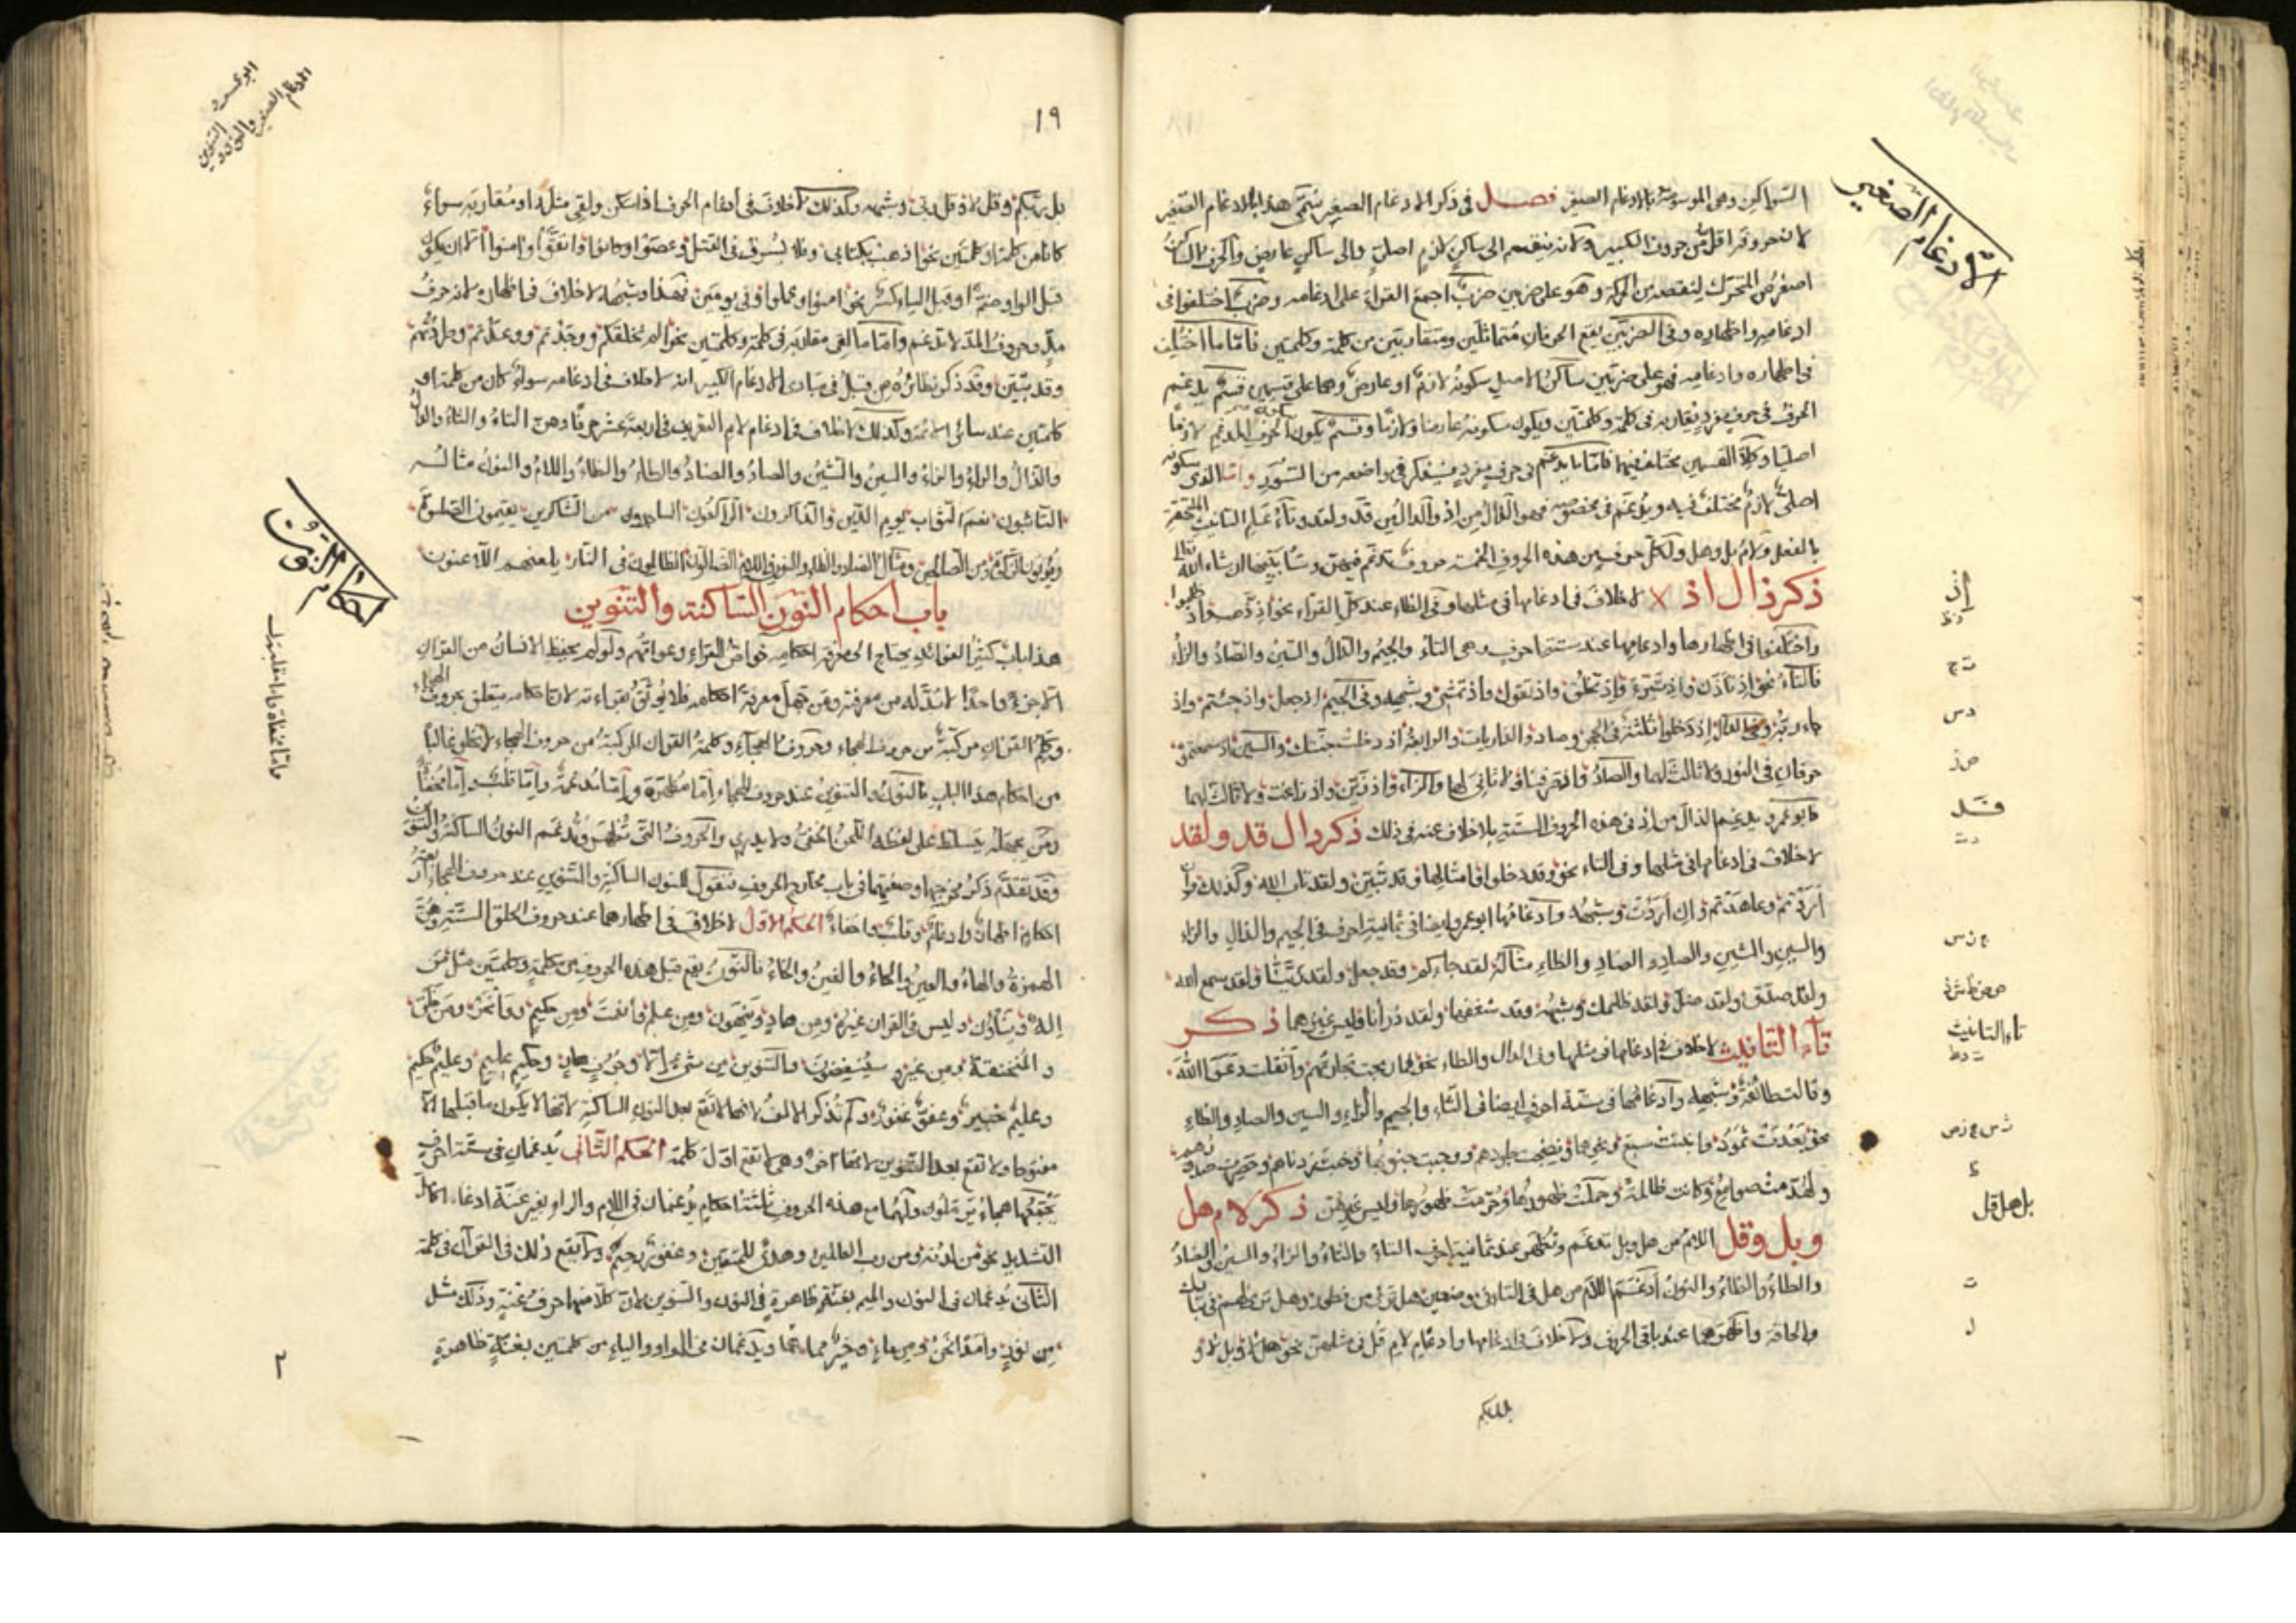 الادغام الصغير
السواكن وهى الموسومة بالادغام الصغير فصل فى ذكر الادغام الصغير سُمّى هذا بالادغام الصغير
لان حروفه اقل من حروف الكبير ولانه ينقسم الى ساكن لازم اصلى والى ساكن عارض والحرف الساكن
اصغر من المتحرك لنقصه من الحركة وهو على ضربين ضرب اجمع القراء على ادغامه وضرب اختلفوا فى
ادغامه واظهاره وفى الضربين يقع الحرفان متماثلين ومتقاربين من كلمة وكلمتين فاما ما اختلف
فى اظهاره وادغامه فهو على ضربين ساكن الاصل سكونه لازم او عارض وهما على قسمين قسم يدغم
الحرف فى حرف مفرد يقاربه فى كلمة وكلمتين ويكون سكونه عارضا ولازما وقسم يكون الحرف المدغم لازما
اصليا وكلا القسمين مختلف فيهما فاما ما يدغم فى حرف مفرد فيذكر فى مواضعه من السور واما الذى سكونه
اصلى لازم مختلف فيه ويدغم فى فهو الذال من اذ والدال من قد ولقد وتاء علم التانيث المتصلة
بالفعل ولام بل وهل ولكل حرف من هذه الحروف الخمسة حروف تدغم فيهن وسياتى ان شاء الله تعالى
ذكر ذال اذ لا خلاف فى ادغامها فى مثلها وفى الظاء عند كل القراء نحو اذ ذهب واذ ظلموا
واختلفوا فى اظهارها وادغامها عند ستة احرف وهى التاء والجيم والدال والسين والصاد والزاء
فالتاء نحو اذ تاذن واذ تبرأ واذ تخلق واذ تقول واذ تمشى وشبهه وفى الجيم اذ جعل واذ جئتم واذ
جاء ربه وفى الدال اذ دخلوا ثلثة فى الحجر وصاد والذاريات والرابعة اذ دخلت جنتك والسين اذ سمعتموه
حرفان فى النور ولا ثالث لهما والصاد واذ صرفنا ولا ثانى لها والزاء واذ زين واذ زاغت ولا ثالث لهما
فابو عمرو يدغم الذال من اذ فى هذه الحروف الستة بلا خلاف عنه فى ذلك ذكر دال قد ولقد
لا خلاف فى ادغامها فى مثلها وفى التاء نحو وقد دخلوا وامثالها وقد تبين ولقد تاب الله وكذلك وان
اردتم وعاهدتم وان اردت وشبهه وادغامها ابو عمرو ايضا فى ثمانية احرف فى الجيم والذال والزاء
والسين والشين والصاد والضاد والظاء مثاله لقد جاءكم وقد جعل ولقد زينا ولقد سمع الله
ولقد صدق ولقد ضل ولقد ظلمك وشبهه وقد شغفها ولقد ذرأنا وليس غيرهما ذكر
تاء التانيث لا خلاف فى ادغامها فى مثلها وفى الدال والطاء نحو فما ربحت تجارتهم واثقلت دعوا الله
وقالت طائفة وشبهه وادغامها فى ستة احرف ايضا فى الثاء والجيم والزاء والسين والصاد والظاء
نحو بعدت ثمود وانبتت سبع ونحوهما ونضجت جلودهم ووجبت جنوبها وخبت زدناهم وحصرت صدورهم
ولهدمت صوامع وكانت ظالمة وحملت ظهورهما وحرمت ظهورها وليس غيرهن ذكر لام هل
وبل وقل اللام من هل وبل تدغم وتظهر عند ثمانية احرف التاء والثاء والزاء والسين والضاد
والطاء والظاء والنون ادغم اللام من هل فى التاء فى موضعين هل ترى من فطور وهل ترى لهم فى تبارك
والحاقة واظهرهما عند باقى الحروف ولا خلاف فى ادغامها وادغام لام قل فى مثلهن نحو هل لا وبل لا و
بل ربكم
اذ
ت ج
د س
ص ز
قد
د ت
ج ز س
ص ض ظ ش ذ
تاء التانيث
ت د ط
ث س ج ز ص
بل هل قل
ت
ل
١٩
ابو عمرو
الادغام الصغير والنون والتنوين
بل ربكم وقل لا وقل ربى وشبهه وكذلك لا خلاف فى ادغام الحرف اذا سكن ولقى مثله او مقاربه سواء
كانا من كلمة او كلمتين نحو اذهب بكتابى وفلا يسرف فى القتل وعصوا وكانوا واتقوا وآمنوا الا ان يكون
قبل الواو ضمة او قبل الياء كسرة نحو آمنوا وعملوا وفى يومين فهذا وشبهه لا خلاف فى اظهاره لانه حرف
مد وحروف المد لا تدغم واما ما لقى مقاربه فى كلمة وكلمتين نحو الم نخلقكم ووجدتم ووعدتم
وقد تبين وقد ذكر نظائره من قبل فى مبادئ الادغام الكبير انه لا خلاف فى ادغامه سواء كان من كلمة او
كلمتين عند سائر الائمة وكذلك لا خلاف فى ادغام لام التعريف فى اربعة عشر حرفا وهن التاء والثاء والدال
والذال والراء والزاء والسين والشين والصاد والضاد والطاء والظاء واللام والنون مثاله
التائبون نعم الثواب يوم الدين والذاكرون الراكعون الساجدون من الشاكرين يقيمون الصلوة
ويؤتون الزكوة ومن الصالحين ومثال الضاد والظاء والنون واللام الضالون الظالمون فى النار يلعنهم اللاعنون
باب احكام النون الساكنة والتنوين
احكام النون
هذا باب كثير الفوائد يحتاج الى معرفة احكامه خواص القراء وعوامهم ولو لم يحفظ الانسان من القران
الا جزءا واحدا لا بد له من معرفته ومن جهل معرفة احكامه فلا يوثق بقراءته لان احكامه متعلق بحروف الهجاء
وكلم القران مركبة من حروف الهجاء وحروف الهجاء وكلمة القران المركبة من حروف الهجاء لا تخلو غالبا
من احكام هذا الباب فالنون والتنوين عند حروف الهجاء اما مظهرة واما مدغمة واما قلبت واما مخفاة
ومن يجهله يتسلط على لفظه اللحن الخفى ولا يدرى والحروف التى تظهر وتدغم النون الساكنة والتنوين
وقد تقدم ذكر مخرجها وصفتهما فى باب مخارج الحروف فنقول للنون الساكنة والتنوين عند حروف الهجاء اربعة
احكام اظهار وادغام وقلب واخفاء الحكم الاول لا خلاف فى اظهارهما عند حروف الحلق الستة وهن
الهمزة والهاء والعين والحاء والغين والخاء فالنون يقع قبل هذه الحروف من كلمة وكلمتين مثل من
اله وينأون وليس فى القران غيره ومن هاد وينهون ومن علم وانعمت ومن حكيم وانحر ومن خلق
والمنخنقة ومن غيره فسينغضون والتنوين من شىء الا وجرف هار وحكيم عليم وعليم حكيم
وعليم خبير وعفو غفور ولم تذكر الالف لانها لا تقع بعد النون الساكنة لانها لا يكون ما قبلها الا
مفتوحا ولا تقع بعد التنوين لانها آخر وهى لا تقع اول كلمة الحكم الثانى يدغمان فى ستة احرف
يجمعها هجاء يرملون ولهما مع هذه الحروف ثلثة احكام يدغمان فى اللام والراء بغير غنة ادغاما كامل
التشديد نحو من لدنه ومن رب العالمين وهدى للمتقين وغفور رحيم ولا يقع ذلك فى القرآن فى كلمة
الثانى يدغمان فى النون والميم بغنة ظاهرة فى النون والتنوين لان كلا منهما حرف غنة وذلك مثل
من نور وامنة نحن ومن ماء وخير مما ويدغمان فى الواو والياء من كلمتين بغنة ظاهرة
٢